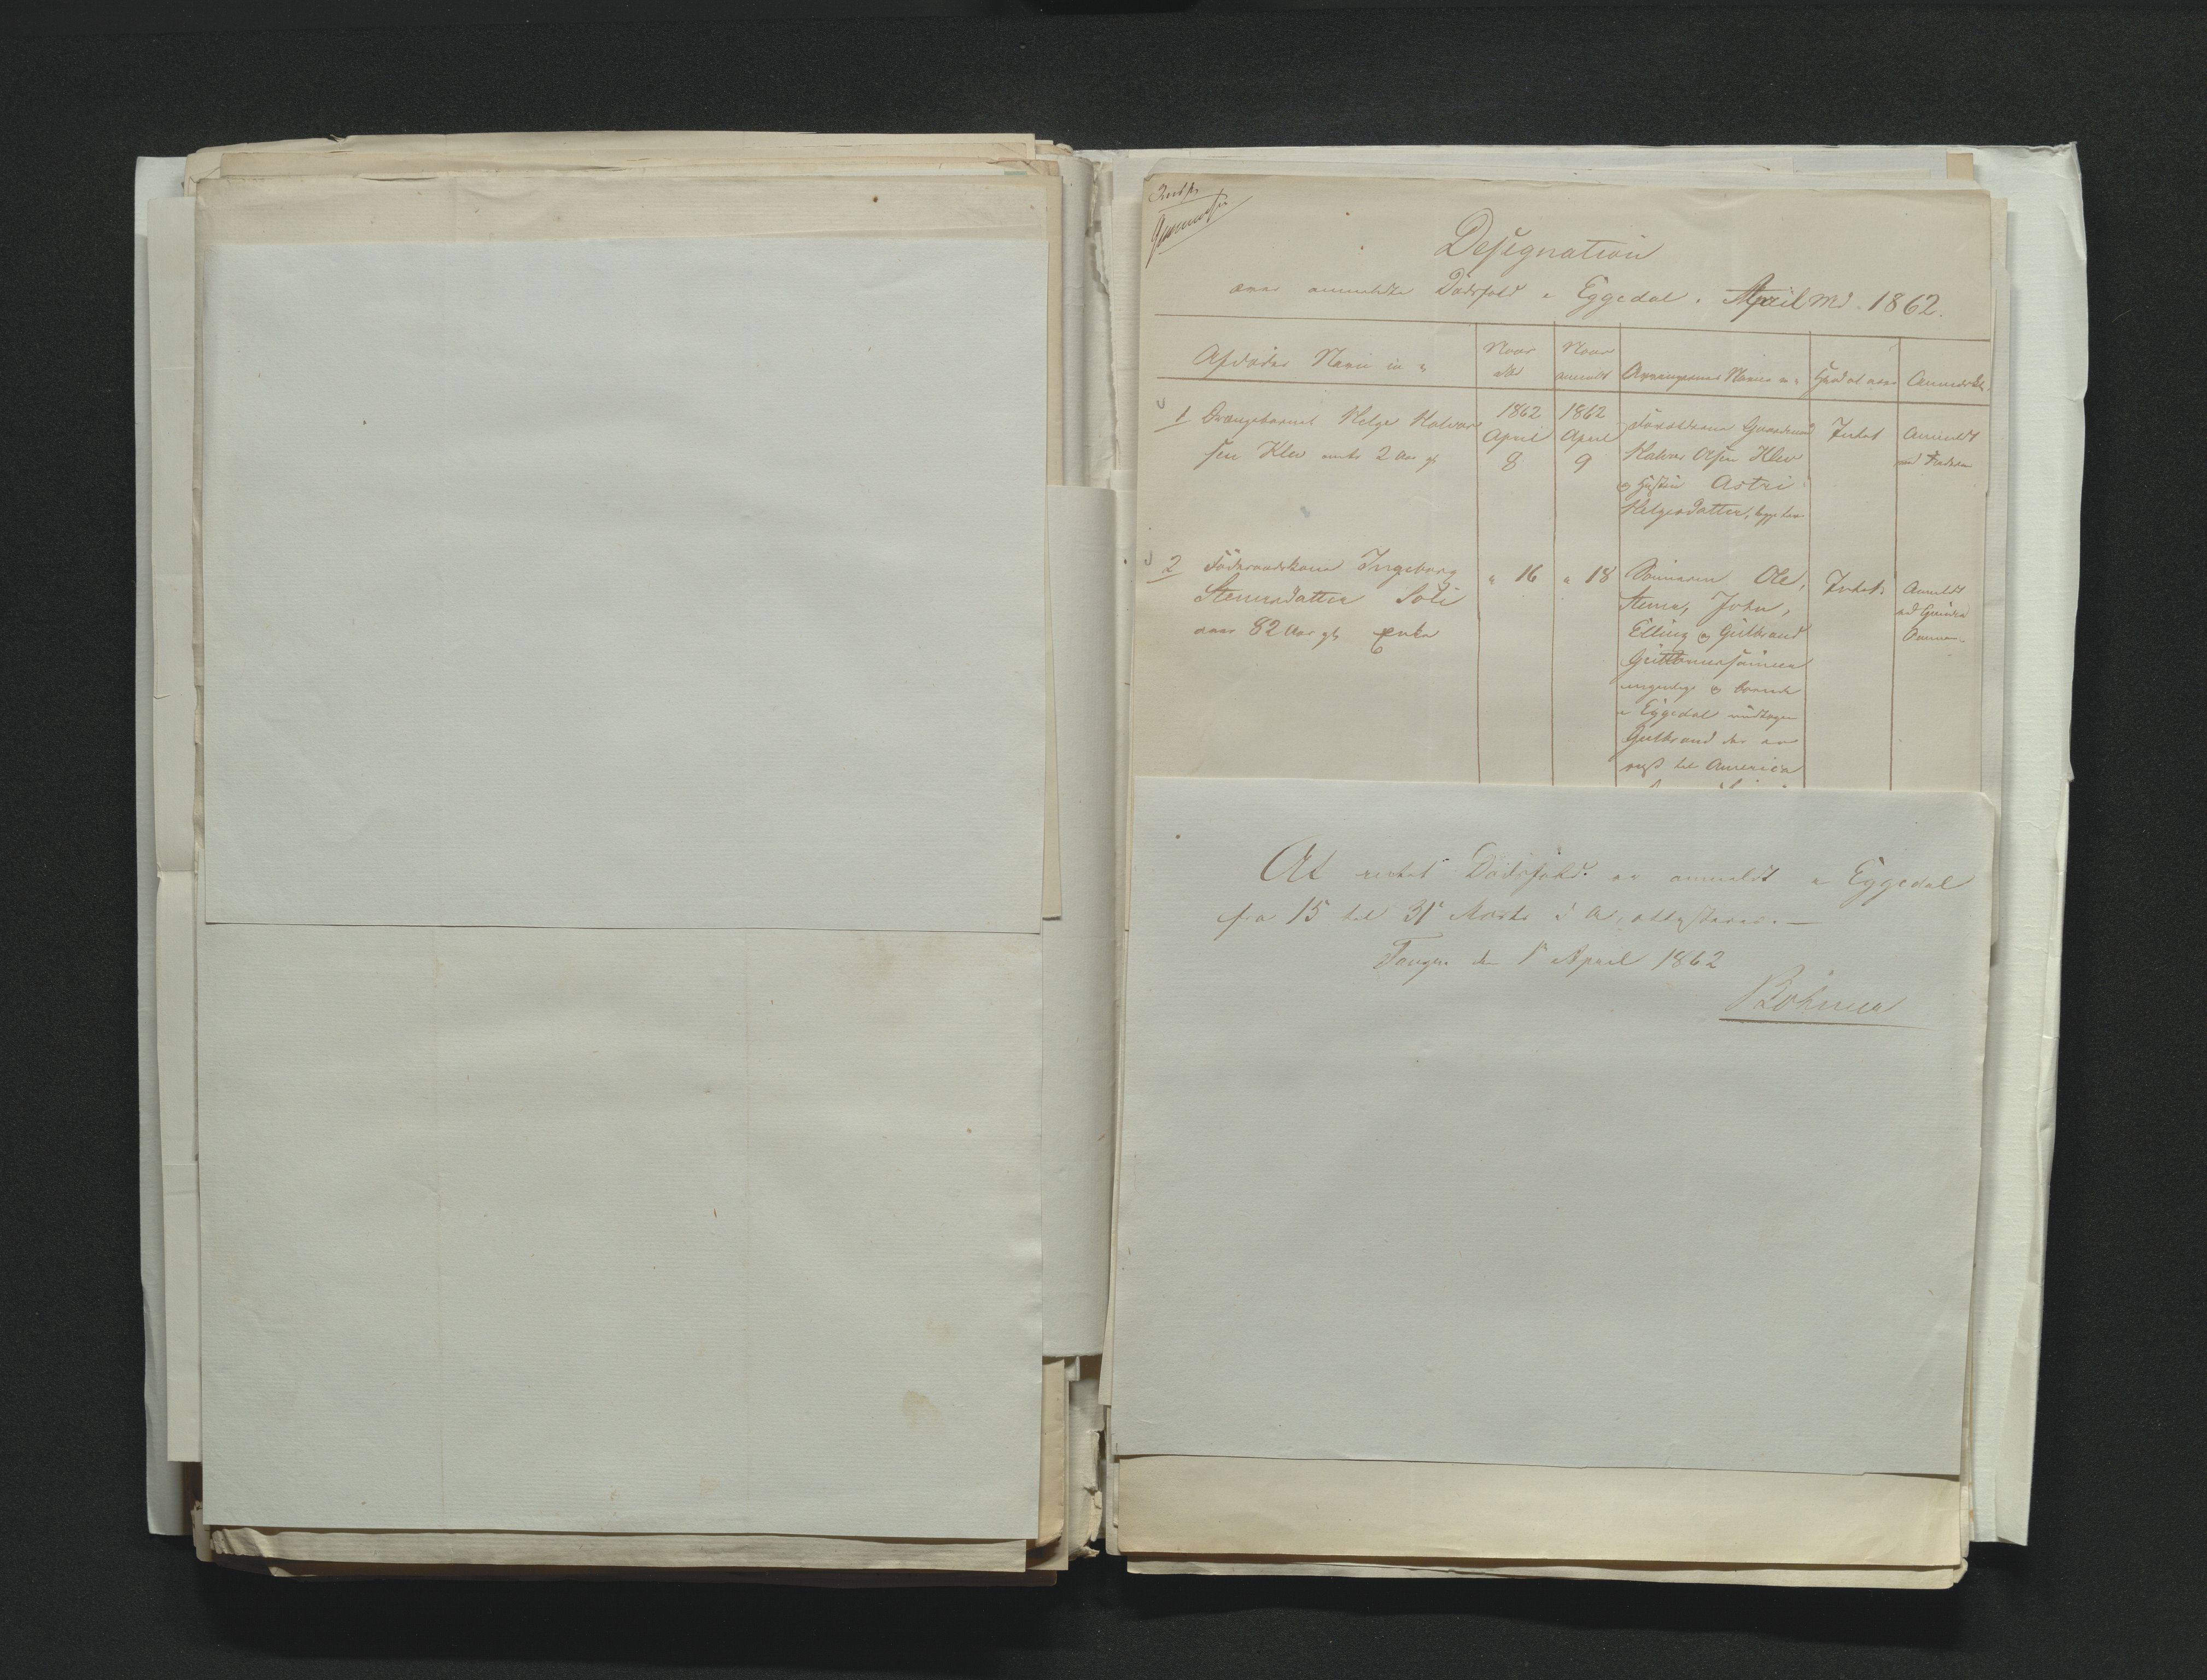 Designation
over anmeldte Dødsfald i Eggedal i April Md. 1862.
Afdødes Navn m. v.
Naar død
Naar anmeldt
Arvingernes Navne m. v.
Anmærk.
1 Drængebarnet Helge Halvor-
sen Klev 2 Aar gl
1862 April 8
1862 April 9
Forældrene Gaardmand
Halvor Olsen Klev
og Hustru Astri
Helgesdatter, begge
Intet
Anmeldt
ved Faderen
2 Føderaadskone Ingeborg
Steensdatter Soli
82 Aar gl Enke
" 16
" 18
Sønnerne Ole,
Steen, John,
Elling og Gulbrand
myndige og boende
i Eggedal undtagen
Gulbrand der er
reist til America
Intet
Anmeldt
ved
At intet Dødsfald er anmeldt i Eggedal
fra 15 til 31 Marts d. A, attesteres. —
Fougn den 1 April 1862